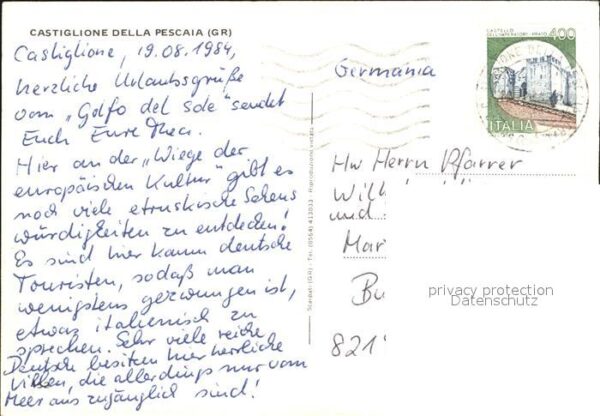 CASTIGLIONE DELLA PESCAIA (GR)
Castiglione, 19.08.1984,
herzliche Urlaubsgrüße
vom "Golfo del Sole" sendet
Euch Eure Thea.
Hier an der "Wiege der
europäischen Kultur" gibt es
noch viele etruskische Sehens
würdigkeiten zu entdecken!
Es sind hier kaum deutsche
Touristen, sodaß man
wenigstens gezwungen ist,
etwas italienisch zu
sprechen. Sehr viele reiche
Deutsche besitzen hier herrliche
Villen, die allerdings nur vom
Meer aus zugänglich sind!
Riproduzione vietata
Tel. (0564) 413033
(GR)
Germania
CASTELLO
DELL'IMPERATORE · PRATO
400
ITALIA
Herrn Pfarrer
Wil
und
Mar
Bu
821
privacy protection
Datenschutz